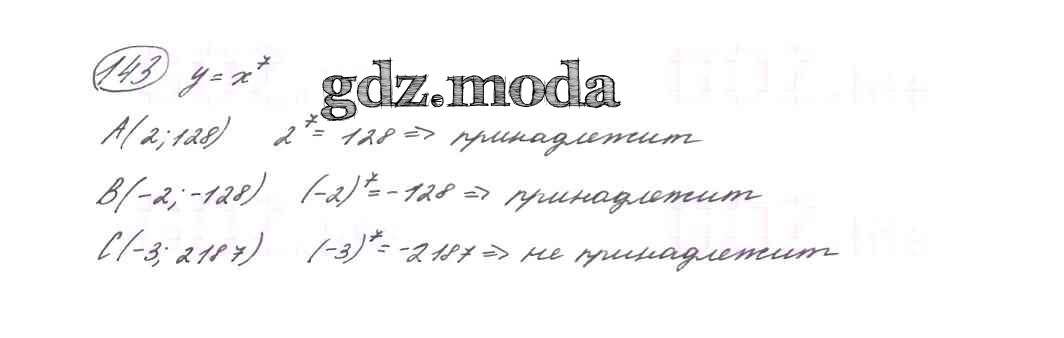 143 y = x⁷
gdz.moda
A(2; 128) 2⁷ = 128 => принадлежит
B(-2; -128) (-2)⁷ = -128 => принадлежит
C(-3; 2187) (-3)⁷ = -2187 => не принадлежит